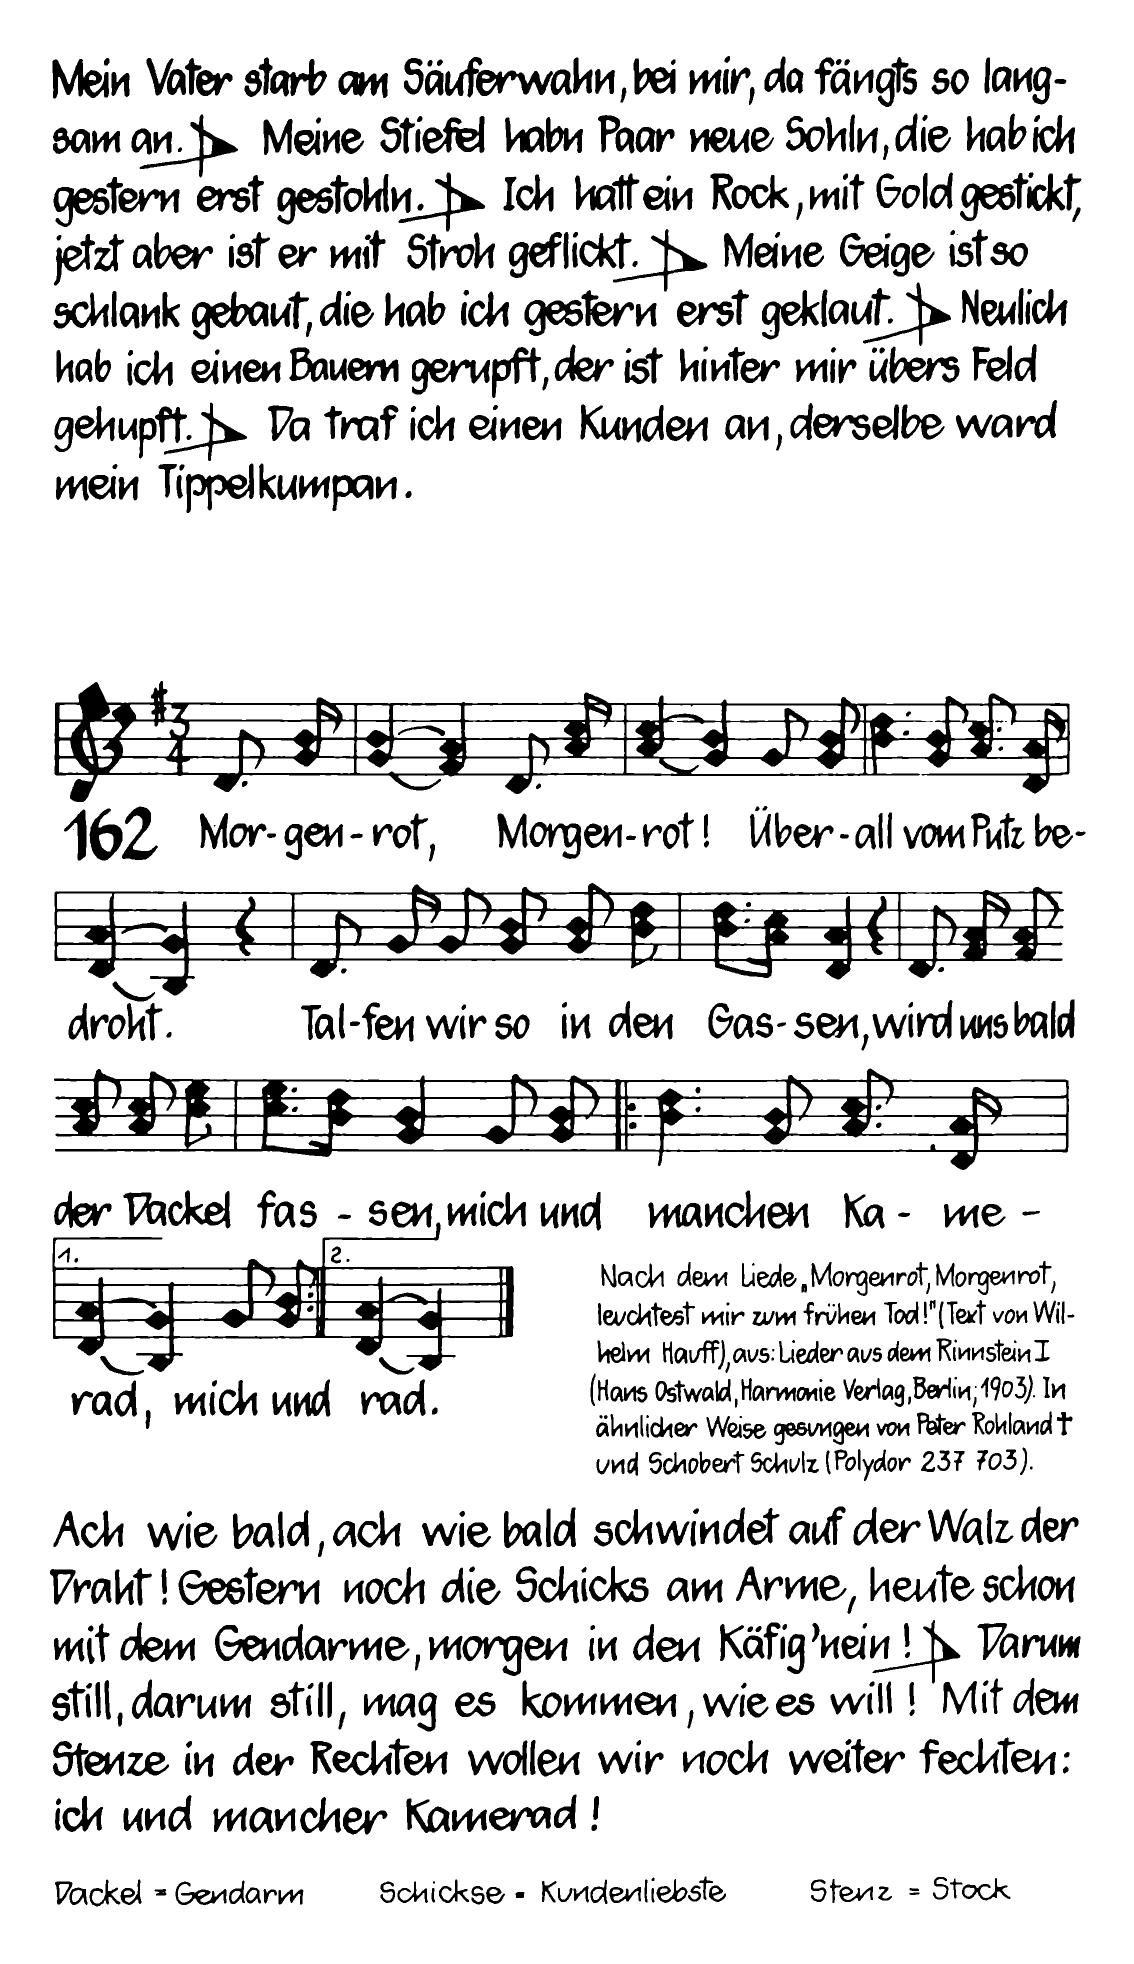 Mein Vater starb am Säuferwahn, bei mir, da fängts so lang-
sam an. Meine Stiefel habn Paar neue Sohln, die hab ich
gestern erst gestohln. Ich hatt ein Rock, mit Gold gestickt,
jetzt aber ist er mit Stroh geflickt. Meine Geige ist so
schlank gebaut, die hab ich gestern erst geklaut. Neulich
hab ich einen Bauern gerupft, der ist hinter mir übers Feld
gehupft. Da traf ich einen Kunden an, derselbe ward
mein Tippelkumpan.
3
4
162 Mor-gen-rot, Morgen-rot! Über-all vom Putz be-
droht. Tal-fen wir so in den Gas-sen, wird uns bald
der Dackel fas - sen, mich und manchen Ka - me -
1. 2.
rad, mich und rad.
Nach dem Liede „Morgenrot, Morgenrot,
leuchtest mir zum frühen Tod!" (Text von Wil-
helm Hauff), aus: Lieder aus dem Rinnstein I
(Hans Ostwald, Harmonie Verlag, Berlin; 1903). In
ähnlicher Weise gesungen von Peter Rohland †
und Schobert Schulz (Polydor 237 703).
Ach wie bald, ach wie bald schwindet auf der Walz der
Draht! Gestern noch die Schicks am Arme, heute schon
mit dem Gendarme, morgen in den Käfig 'nein! Darum
still, darum still, mag es kommen, wie es will! Mit dem
Stenze in der Rechten wollen wir noch weiter fechten:
ich und mancher Kamerad!
Dackel = Gendarm Schickse = Kundenliebste Stenz = Stock